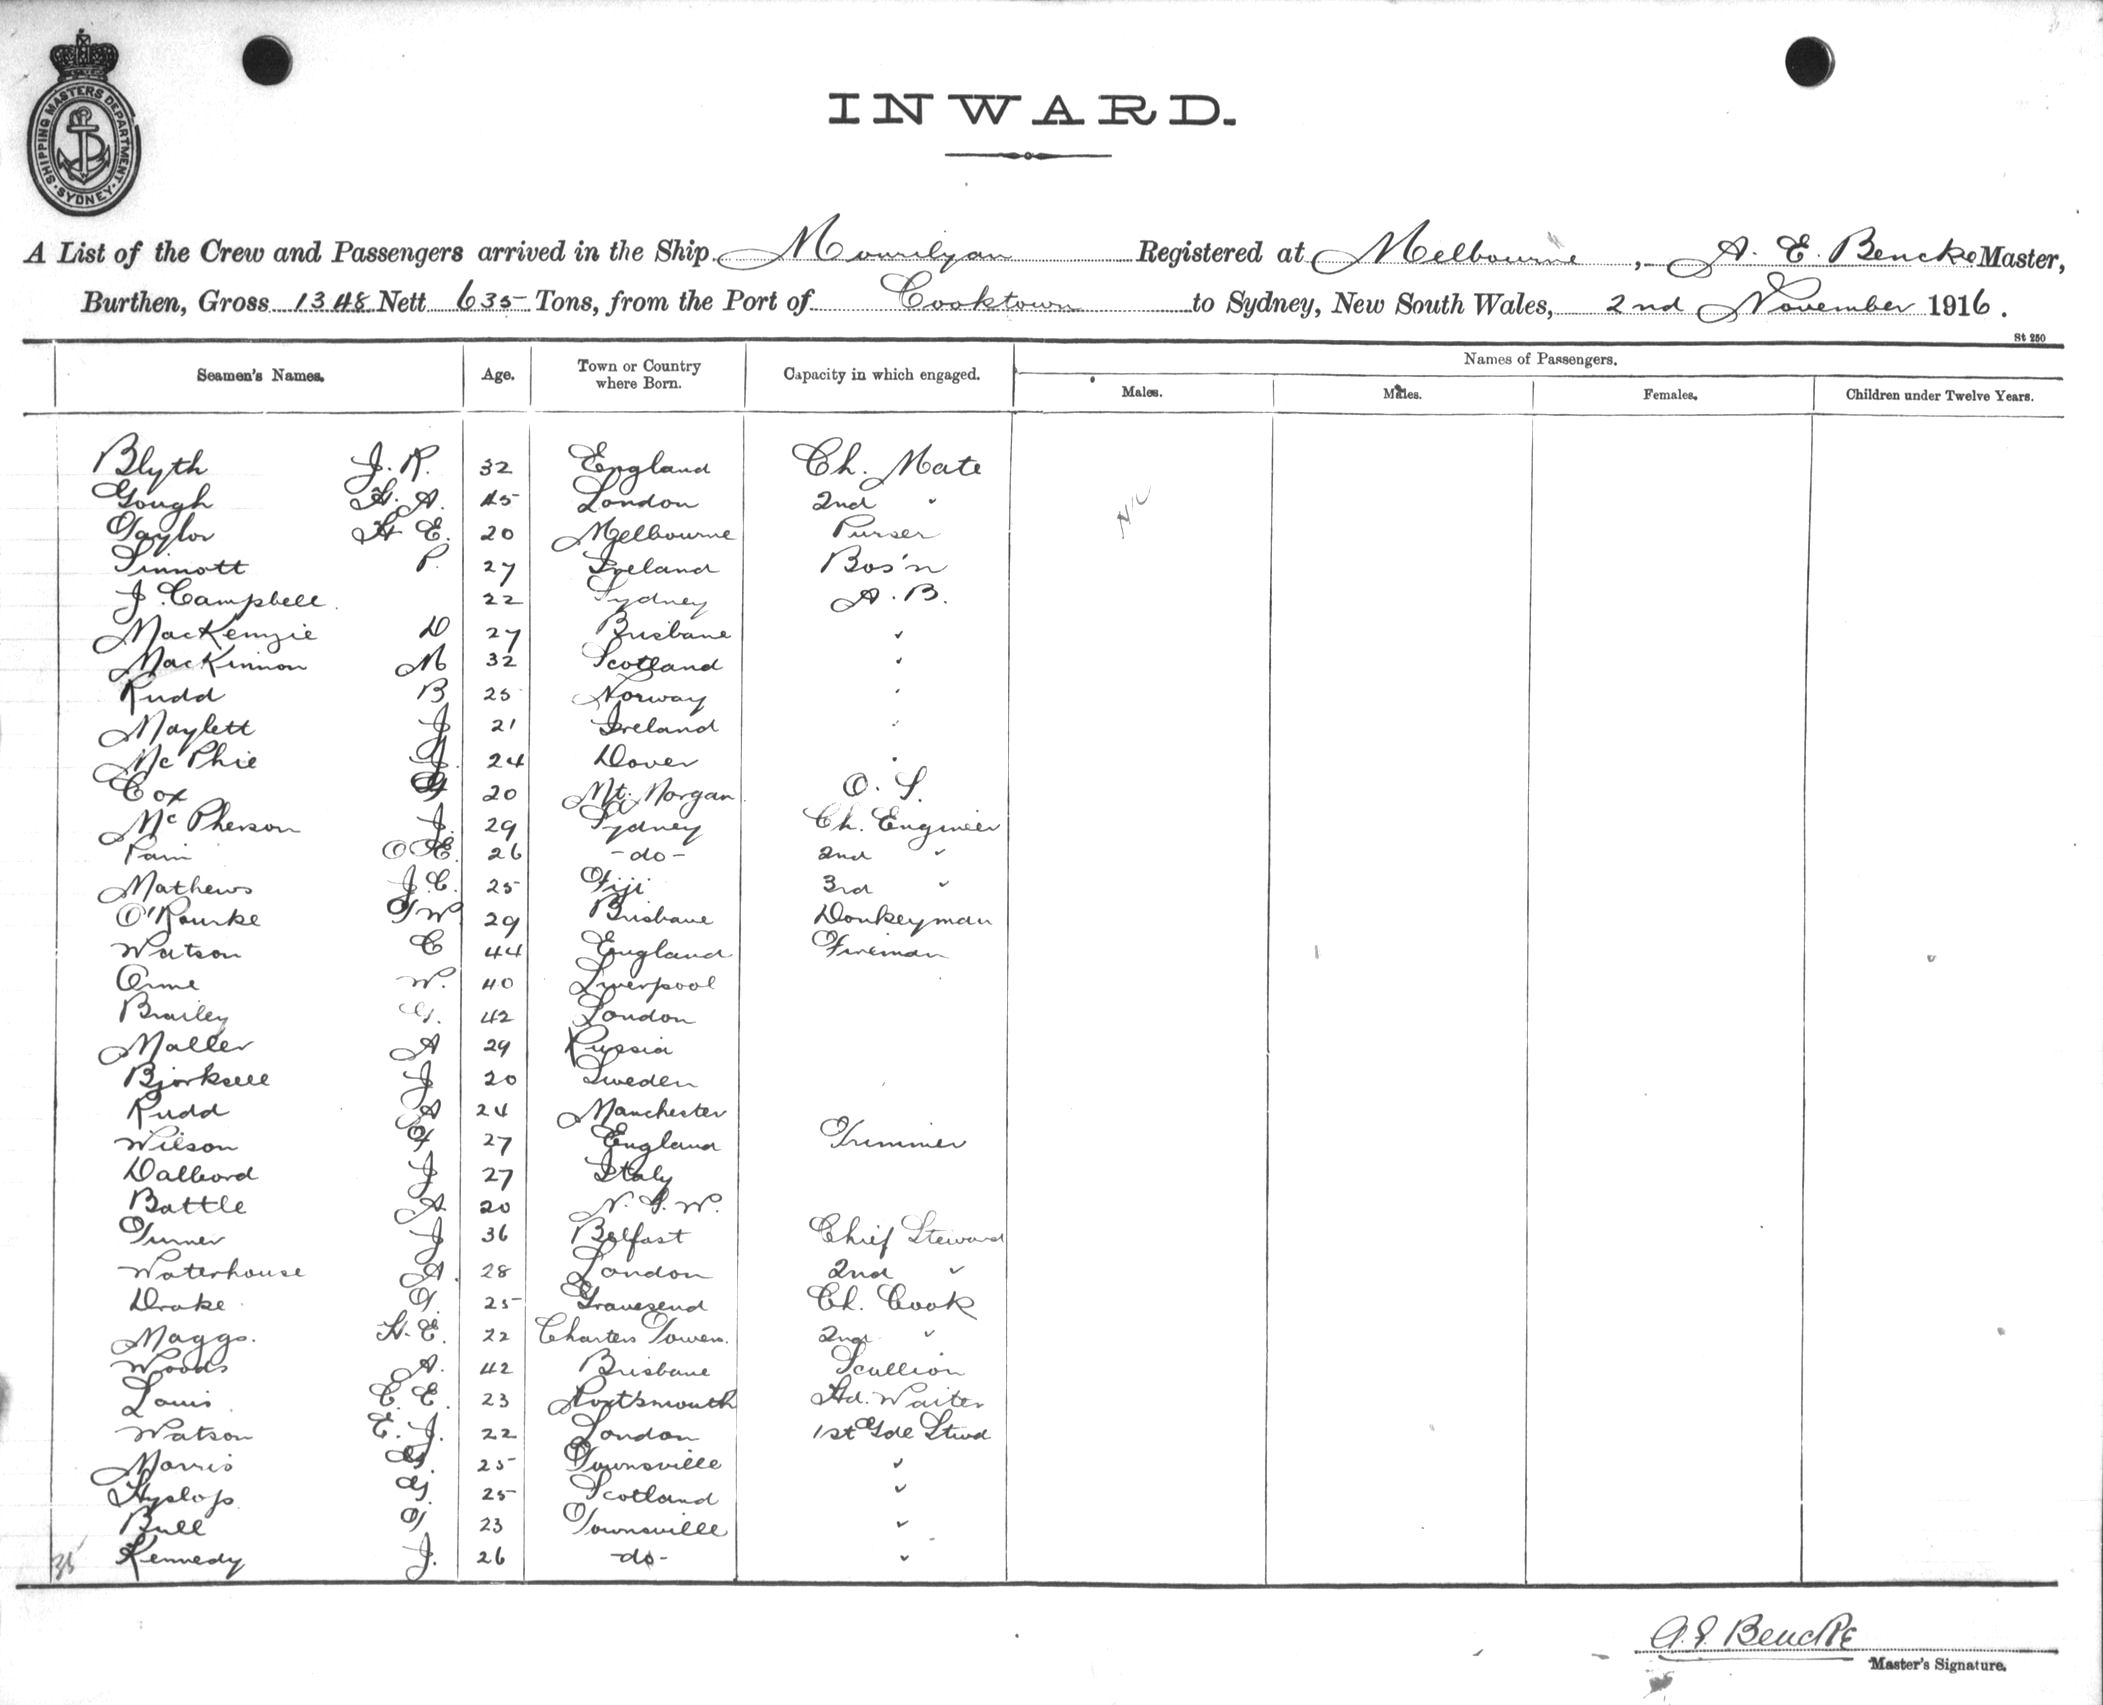 SHIPPING MASTERS DEPARTMENT. SYDNEY
INWARD.
A List of the Crew and Passengers arrived in the Ship Mourilyan Registered at Melbourne, A. E. Bencke Master,
Burthen, Gross 1348 Nett 635 Tons, from the Port of Cooktown to Sydney, New South Wales, 2nd November 1916.
St 250
Seamen's Names. Age. Town or Country where Born. Capacity in which engaged. Names of Passengers.
Males. Males. Females. Children under Twelve Years.
Blyth J. R. 32 England Ch. Mate
Gough H. A. 45 London 2nd "
Taylor H. E. 20 Melbourne Purser
Sinnott P. 27 Ireland Bos'n
J. Campbell 22 Sydney A. B.
MacKenzie D 27 Brisbane "
MacKinnon M 32 Scotland "
Rudd B 25 Norway "
Maylett J 21 Ireland "
McPhie J. 24 Dover "
Cox 20 Mt. Morgan O. S.
McPherson J. 29 Sydney Ch. Engineer
Pain O E. 26 -do- 2nd "
Mathews J. C. 25 Fiji 3rd "
O'Rourke T W 29 Brisbane Donkeyman
Watson C 44 England Fireman
Orme W. 40 Liverpool
Brailey G. 42 London
Maller A 29 Russia
Bjorksell J 20 Sweden
Rudd A 24 Manchester
Wilson F 27 England Trimmer
Dalbord J 27 Italy
Battle A 20 N. S. W.
Turner J 36 Belfast Chief Steward
Waterhouse A. 28 London 2nd "
Drake T. 25 Gravesend Ch. Cook
Maggs. H. E. 22 Charters Towers. 2nd "
Woods A. 42 Brisbane Scullion
Louis C. E. 23 Portsmouth Hd. Waiter
Watson E. J. 22 London 1st Gde Stwd
Morris G 25 Townsville "
Hyslop G. 25 Scotland "
Bull T 23 Townsville "
35 Kennedy J. 26 -do- "
A. E. Bencke
Master's Signature.